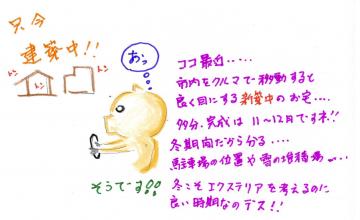 只今
建築中!!
トン
トン
トン
おっ
ココ最近‥‥‥
市内をクルマで移動すると
良く目にする新築中のお宅‥‥
多分、完成は 11〜12月ですネ!!
冬期間だから分る‥‥
駐車場の位置や雪の堆積場‥‥
冬こそエクステリアを考えるのに
良い時期なのデス!!
そうでーす!!